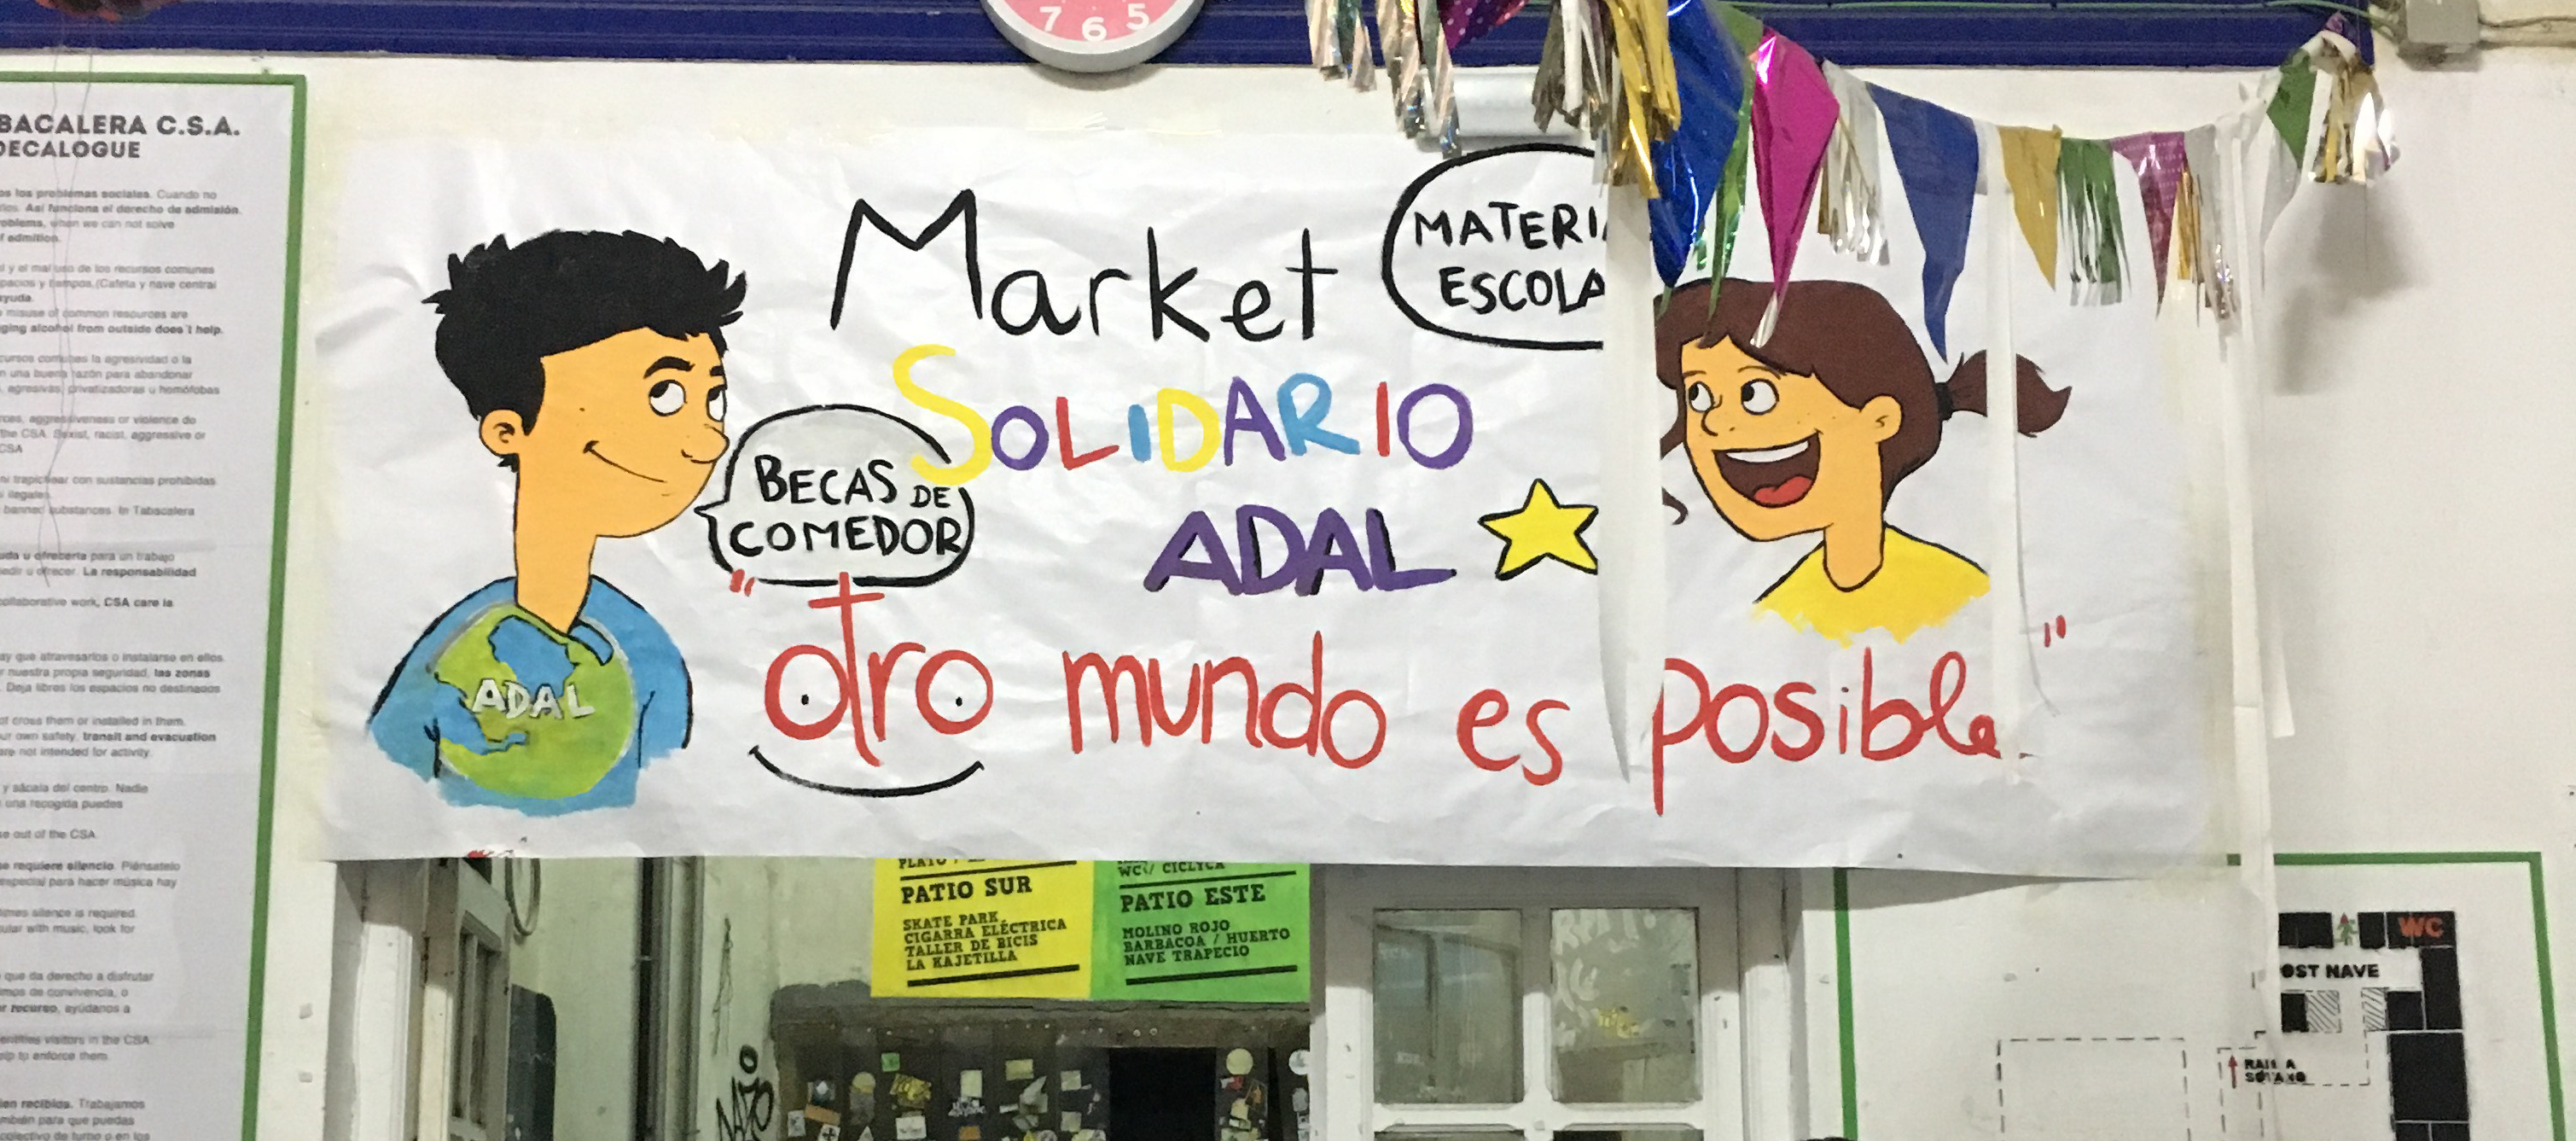 7 6 5
BACALERA C.S.A.
DECALOGUE
los problemas sociales. Cuando no
Así funciona el derecho de admisión.
when we can not solve
y el mal uso de los recursos comunes
misuse of common resources are
alcohol from outside does't help.
la agresividad o la
una buena razón para abandonar
agresivas, privatizadoras u homófobas
aggressiveness or violence do
the CSA. Sexist, racist, aggressive or
CSA
trapichear con sustancias prohibidas
ilegales.
banned substances. In Tabacalera
u ofrecerla para un trabajo
u ofrecer. La responsabilidad
collaborative work, CSA care la
que atravesarlos o instalarse en ellos.
nuestra propia seguridad, las zonas
Deja libres los espacios no destinados
cross them or installed in them.
own safety, transit and evacuation
are not intended for activity.
y sácala del centro. Nadie
una recogida puedes
out of the CSA.
se requiere silencio. Piénsatelo
especial para hacer música hay
silence is required.
with music, look for
que da derecho a disfrutar
de convivencia, o
recurso, ayúdanos a
visitors in the CSA.
to enforce them.
bien recibida. Trabajamos
también para que puedas
colectivo de turno o en los
Market
MATERI
ESCOLA
SOLIDARIO
BECAS DE
COMEDOR
ADAL
"otro mundo es posible"
ADAL
PATIO SUR
SKATE PARK
CIGARRA ELÉCTRICA
TALLER DE BICIS
LA KAJETILLA
WC / CICLYCA
PATIO ESTE
MOLINO ROJO
BARBACOA / HUERTO
NAVE TRAPECIO
WC
OST NAVE